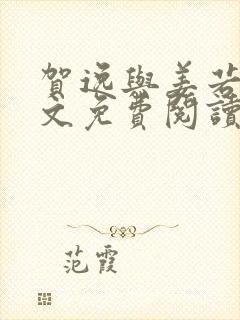 賀逸與姜若
文免費閱讀
范霞